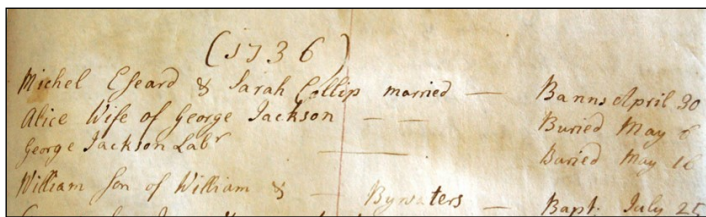 (1736)
Michel Eseard & Sarah Collip married — Banns April 30
Alice Wife of George Jackson — — Buried May 6
George Jackson Labr — Buried May 16
William Son of William & — Bywaters — Bapt. July 25